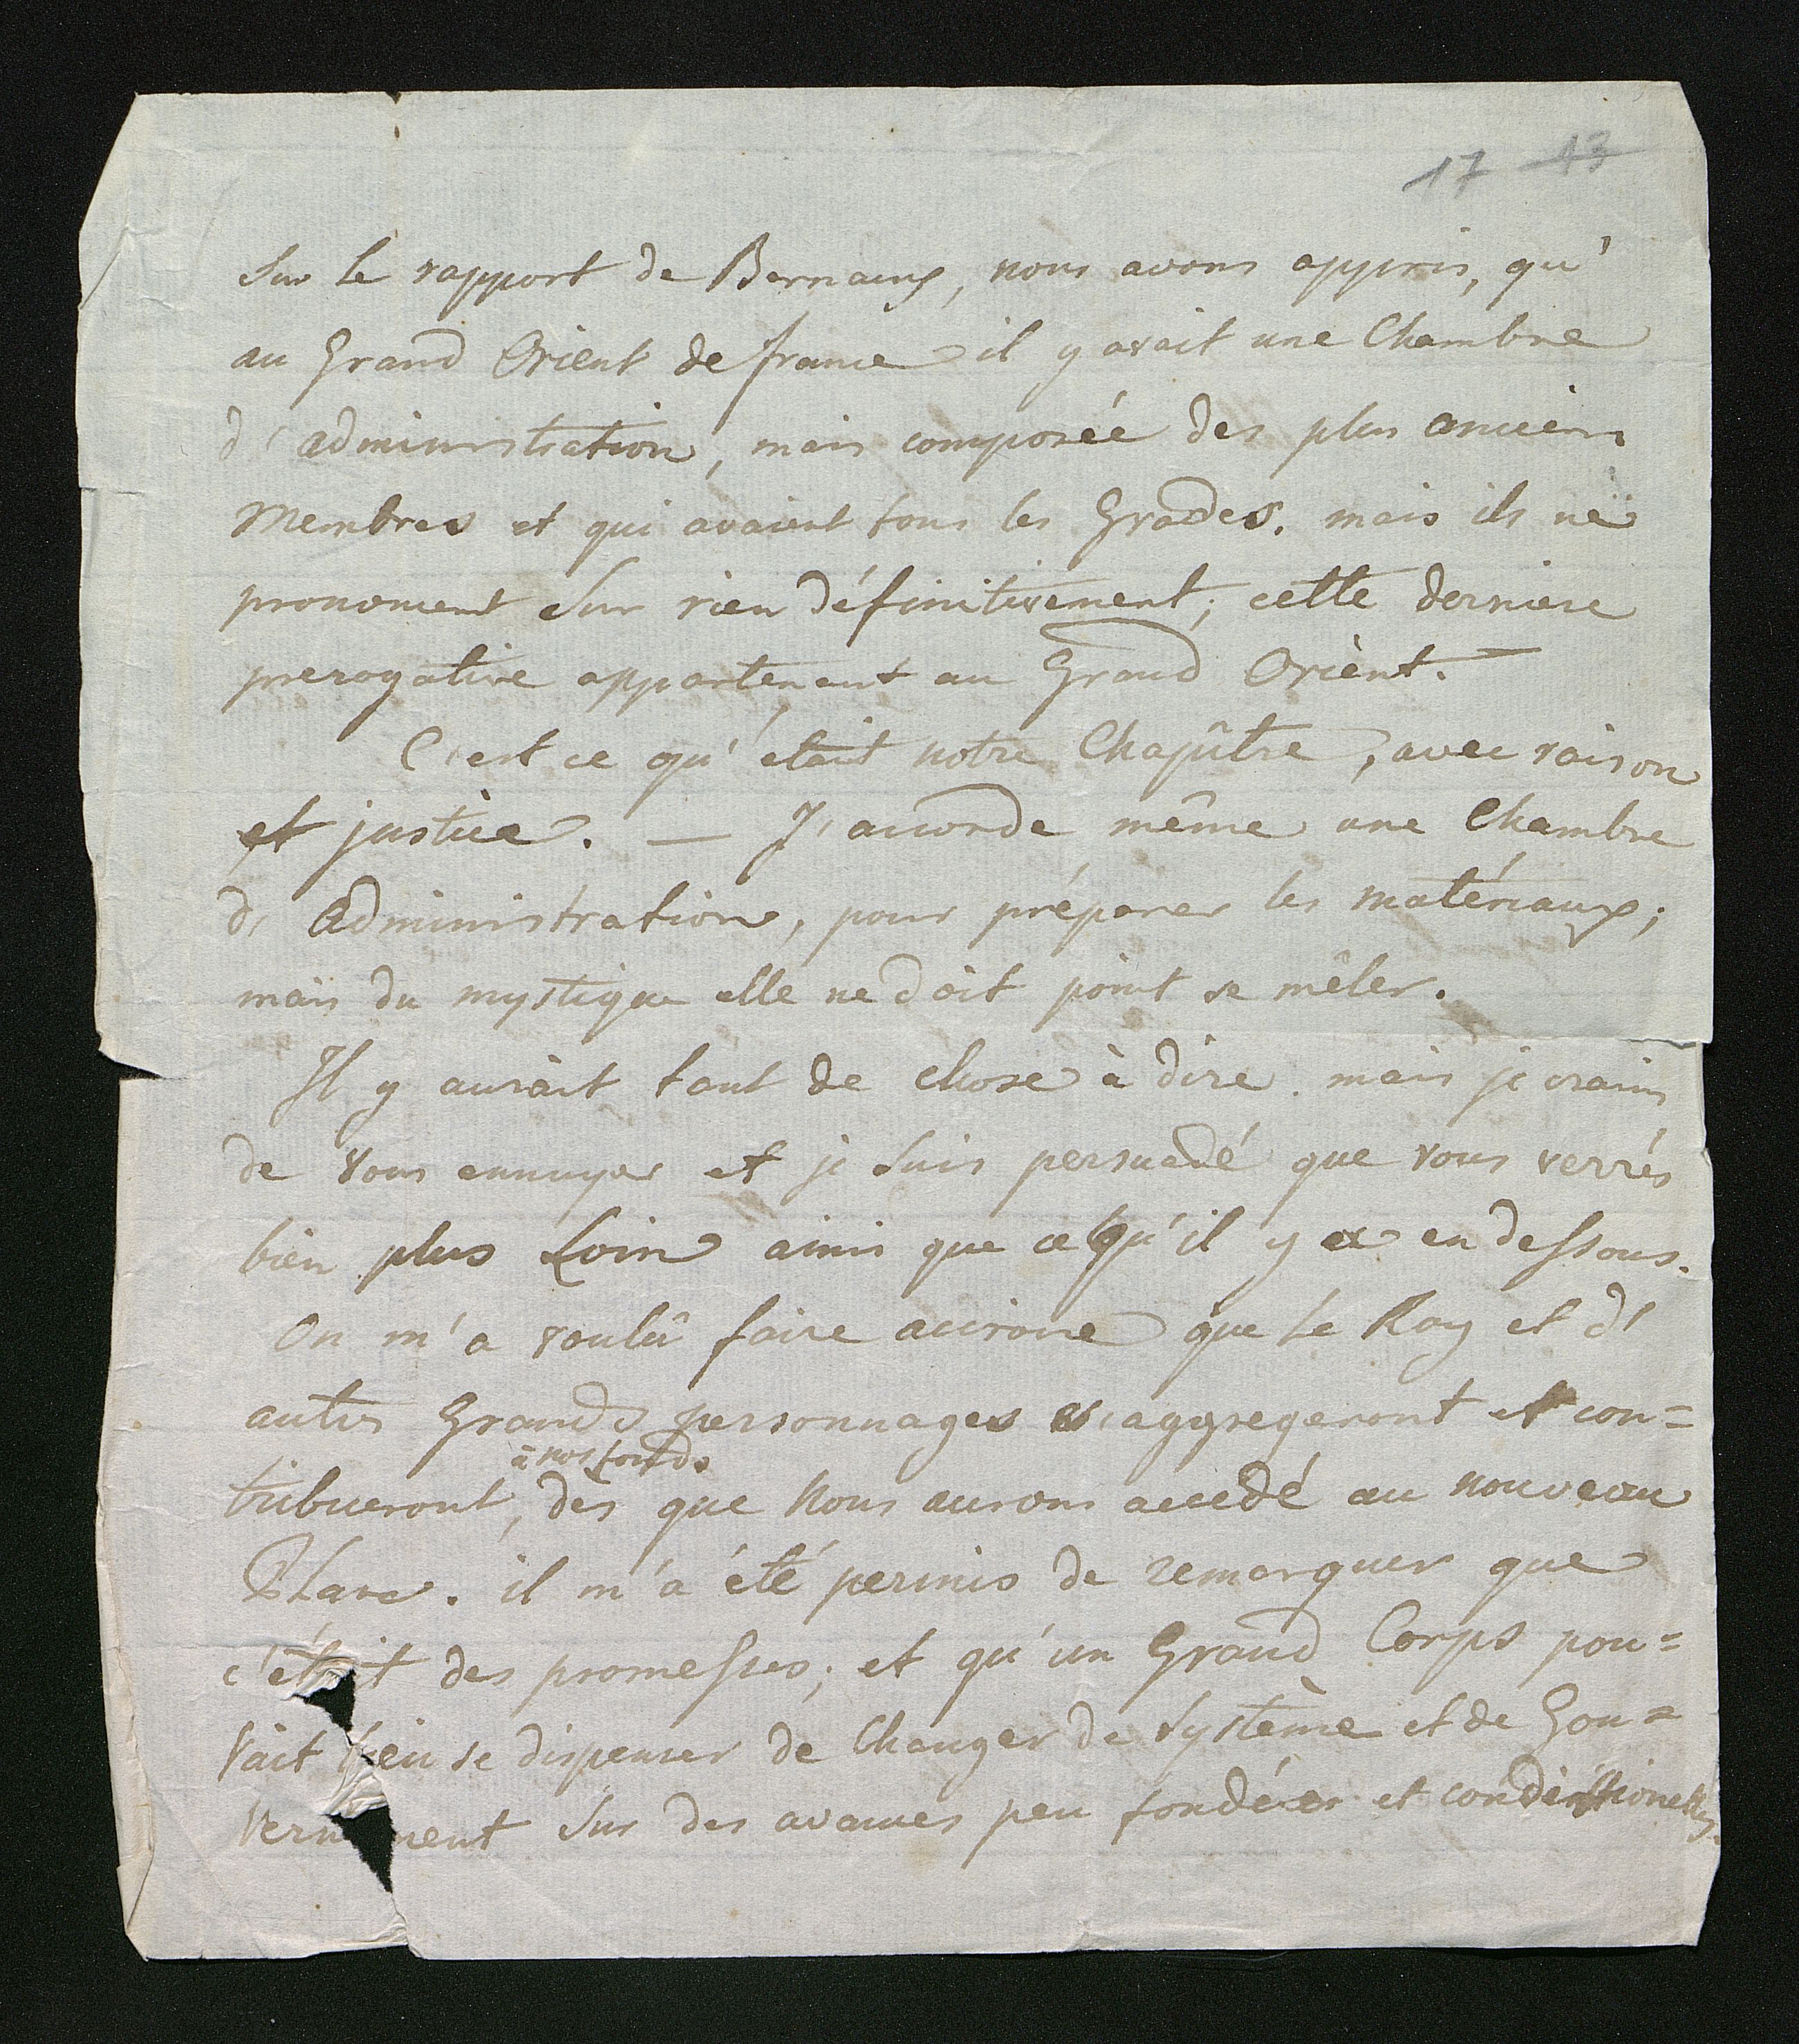 17 13
Sur le rapport de Bernaux, nous avons appris, qu'
au Grand Orient de france il y avait une Chambre
d'administration, mais composéé des plus anciens
Membres et qui avaient tous les Grades. mais ils ne
prononcent Sur rien définitivement; cette derniere
prerogative appartenant au Grand Orient.
C'est ce qu'etait notre Chapître, avec raison
et justice. — J'accorde même une Chambre
d'Administration, pour préparer les matériaux;
mais du mystique elle ne doit point se mêler.
Il y aurait tant de chose à dire. mais je crains
de Vous ennuyer et je Suis persuadé que vous verrés
bien plus Loin ainsi que ce qu'il y a en dessous.
On m'a voulû faire accroire que le Roy et d'
autres Grands personnages s'aggregeront et con=
à nos fonds
tribueront, dès que Nous aurons accedé au nouveau
Plan. il m'a été permis de remarquer que
c'étoit des promesses; et qu'un Grand Corps pou=
vait bien se dispenser de Changer de Système et de Gou=
vernement Sur des avances peu fondées et conditionelles.